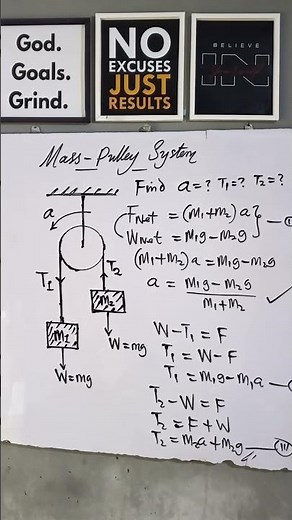 God.
Goals.
Grind.
NO
EXCUSES
JUST
RESULTS
BELIEVE
IN
Mass-Pulley System
Find a=? T₁=? T₂=?
a
FNet = (M₁+M₂)a
WNet = M₁g-M₂g
(M₁+M₂)a = M₁g-M₂g
a = M₁g-M₂g
M₁+M₂
T₁
T₂
M₂
W=mg
M₁
W=mg
W-T₁=F
T₁=W-F
T₁=M₁g-M₁a
T₂-W=F
T₂=F+W
T₂=M₂a+M₂g
III